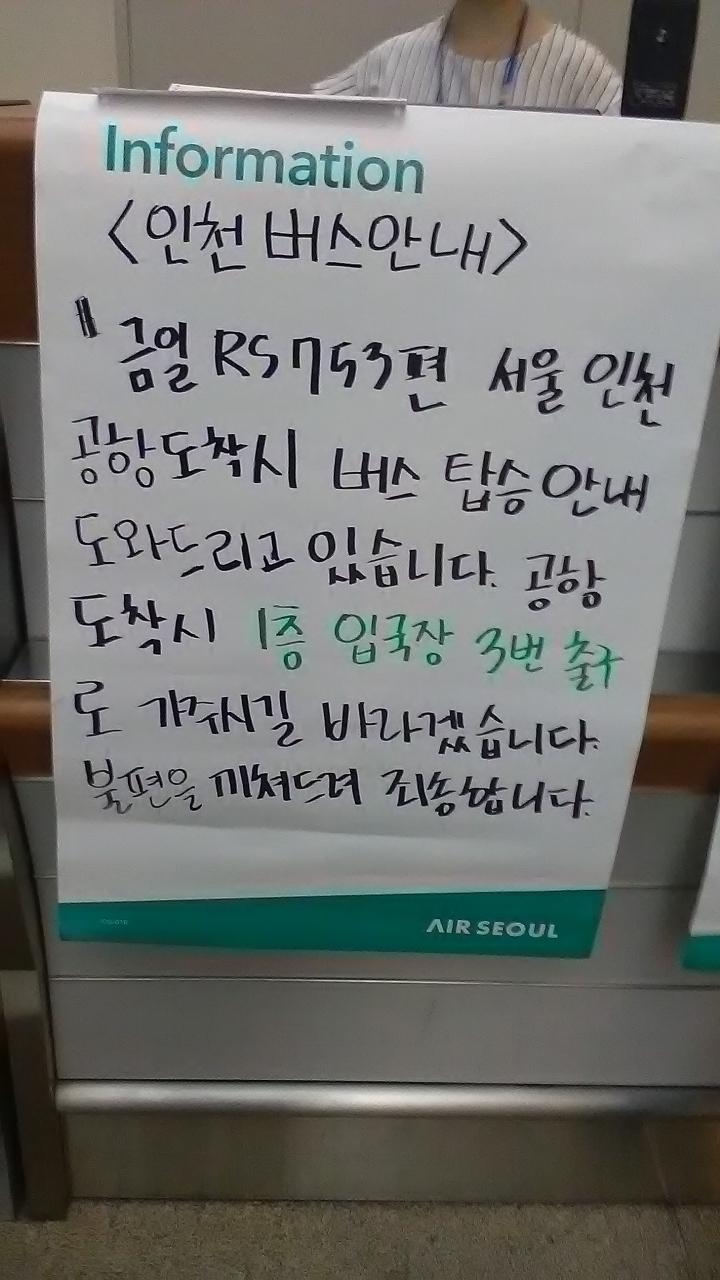 Information
<인천 버스안내>
" 금일 RS753편 서울 인천
공항도착시 버스 탑승안내
도와드리고 있습니다. 공항
도착시 1층 입국장 3번 출구
로 가주시길 바라겠습니다.
불편을 끼쳐드려 죄송합니다.
AIR SEOUL